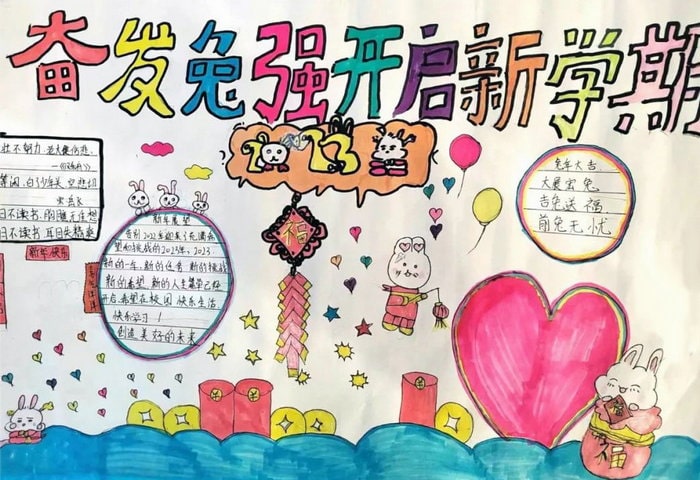 奋发兔强开启新学期
2023
壮不努力 老大徒伤悲
等闲,白了少年头 空悲切
岳飞
日不读书,胸臆无佳想
日不读书,耳目失精爽
新年快乐
新年展望
告别2022年迎来了充满希
望和挑战的2023年,2023
新的一年,新的任务 新的挑战
新的希望 新的人生篇学已经
开启,希望在校园 快乐生活
快乐学习!
创造美好的未来
福
兔年大吉
大展宏兔
吉兔送福
前兔无忧
福